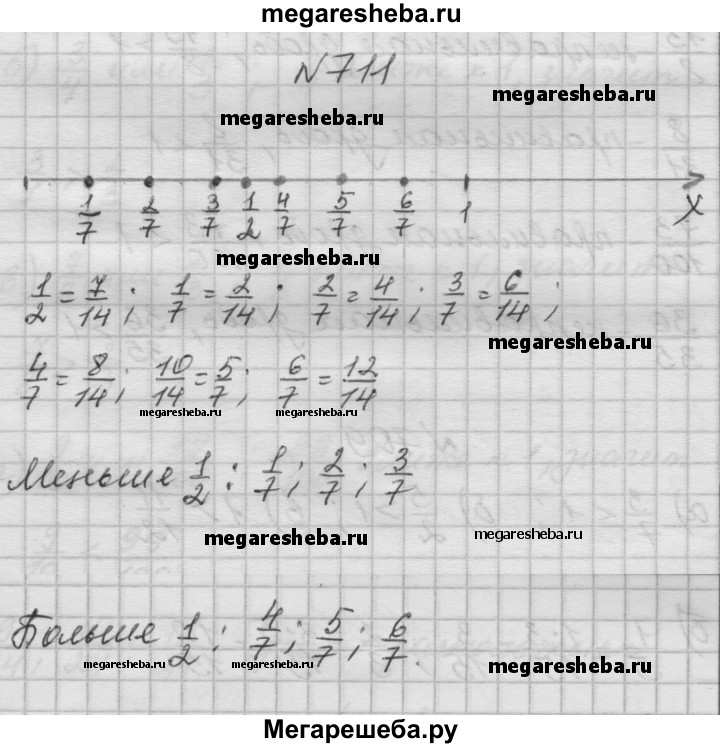 megaresheba.ru
№711
megaresheba.ru
megaresheba.ru
1/7 2/7 3/7 1/2 4/7 5/7 6/7 1 X
megaresheba.ru
1/2 = 7/14; 1/7 = 2/14; 2/7 = 4/14; 3/7 = 6/14;
megaresheba.ru
4/7 = 8/14; 10/14 = 5/7; 6/7 = 12/14
megaresheba.ru megaresheba.ru
Меньше 1/2: 1/7; 2/7; 3/7
megaresheba.ru megaresheba.ru
Больше 1/2: 4/7; 5/7; 6/7.
megaresheba.ru megaresheba.ru megaresheba.ru
Мегарешеба.ру